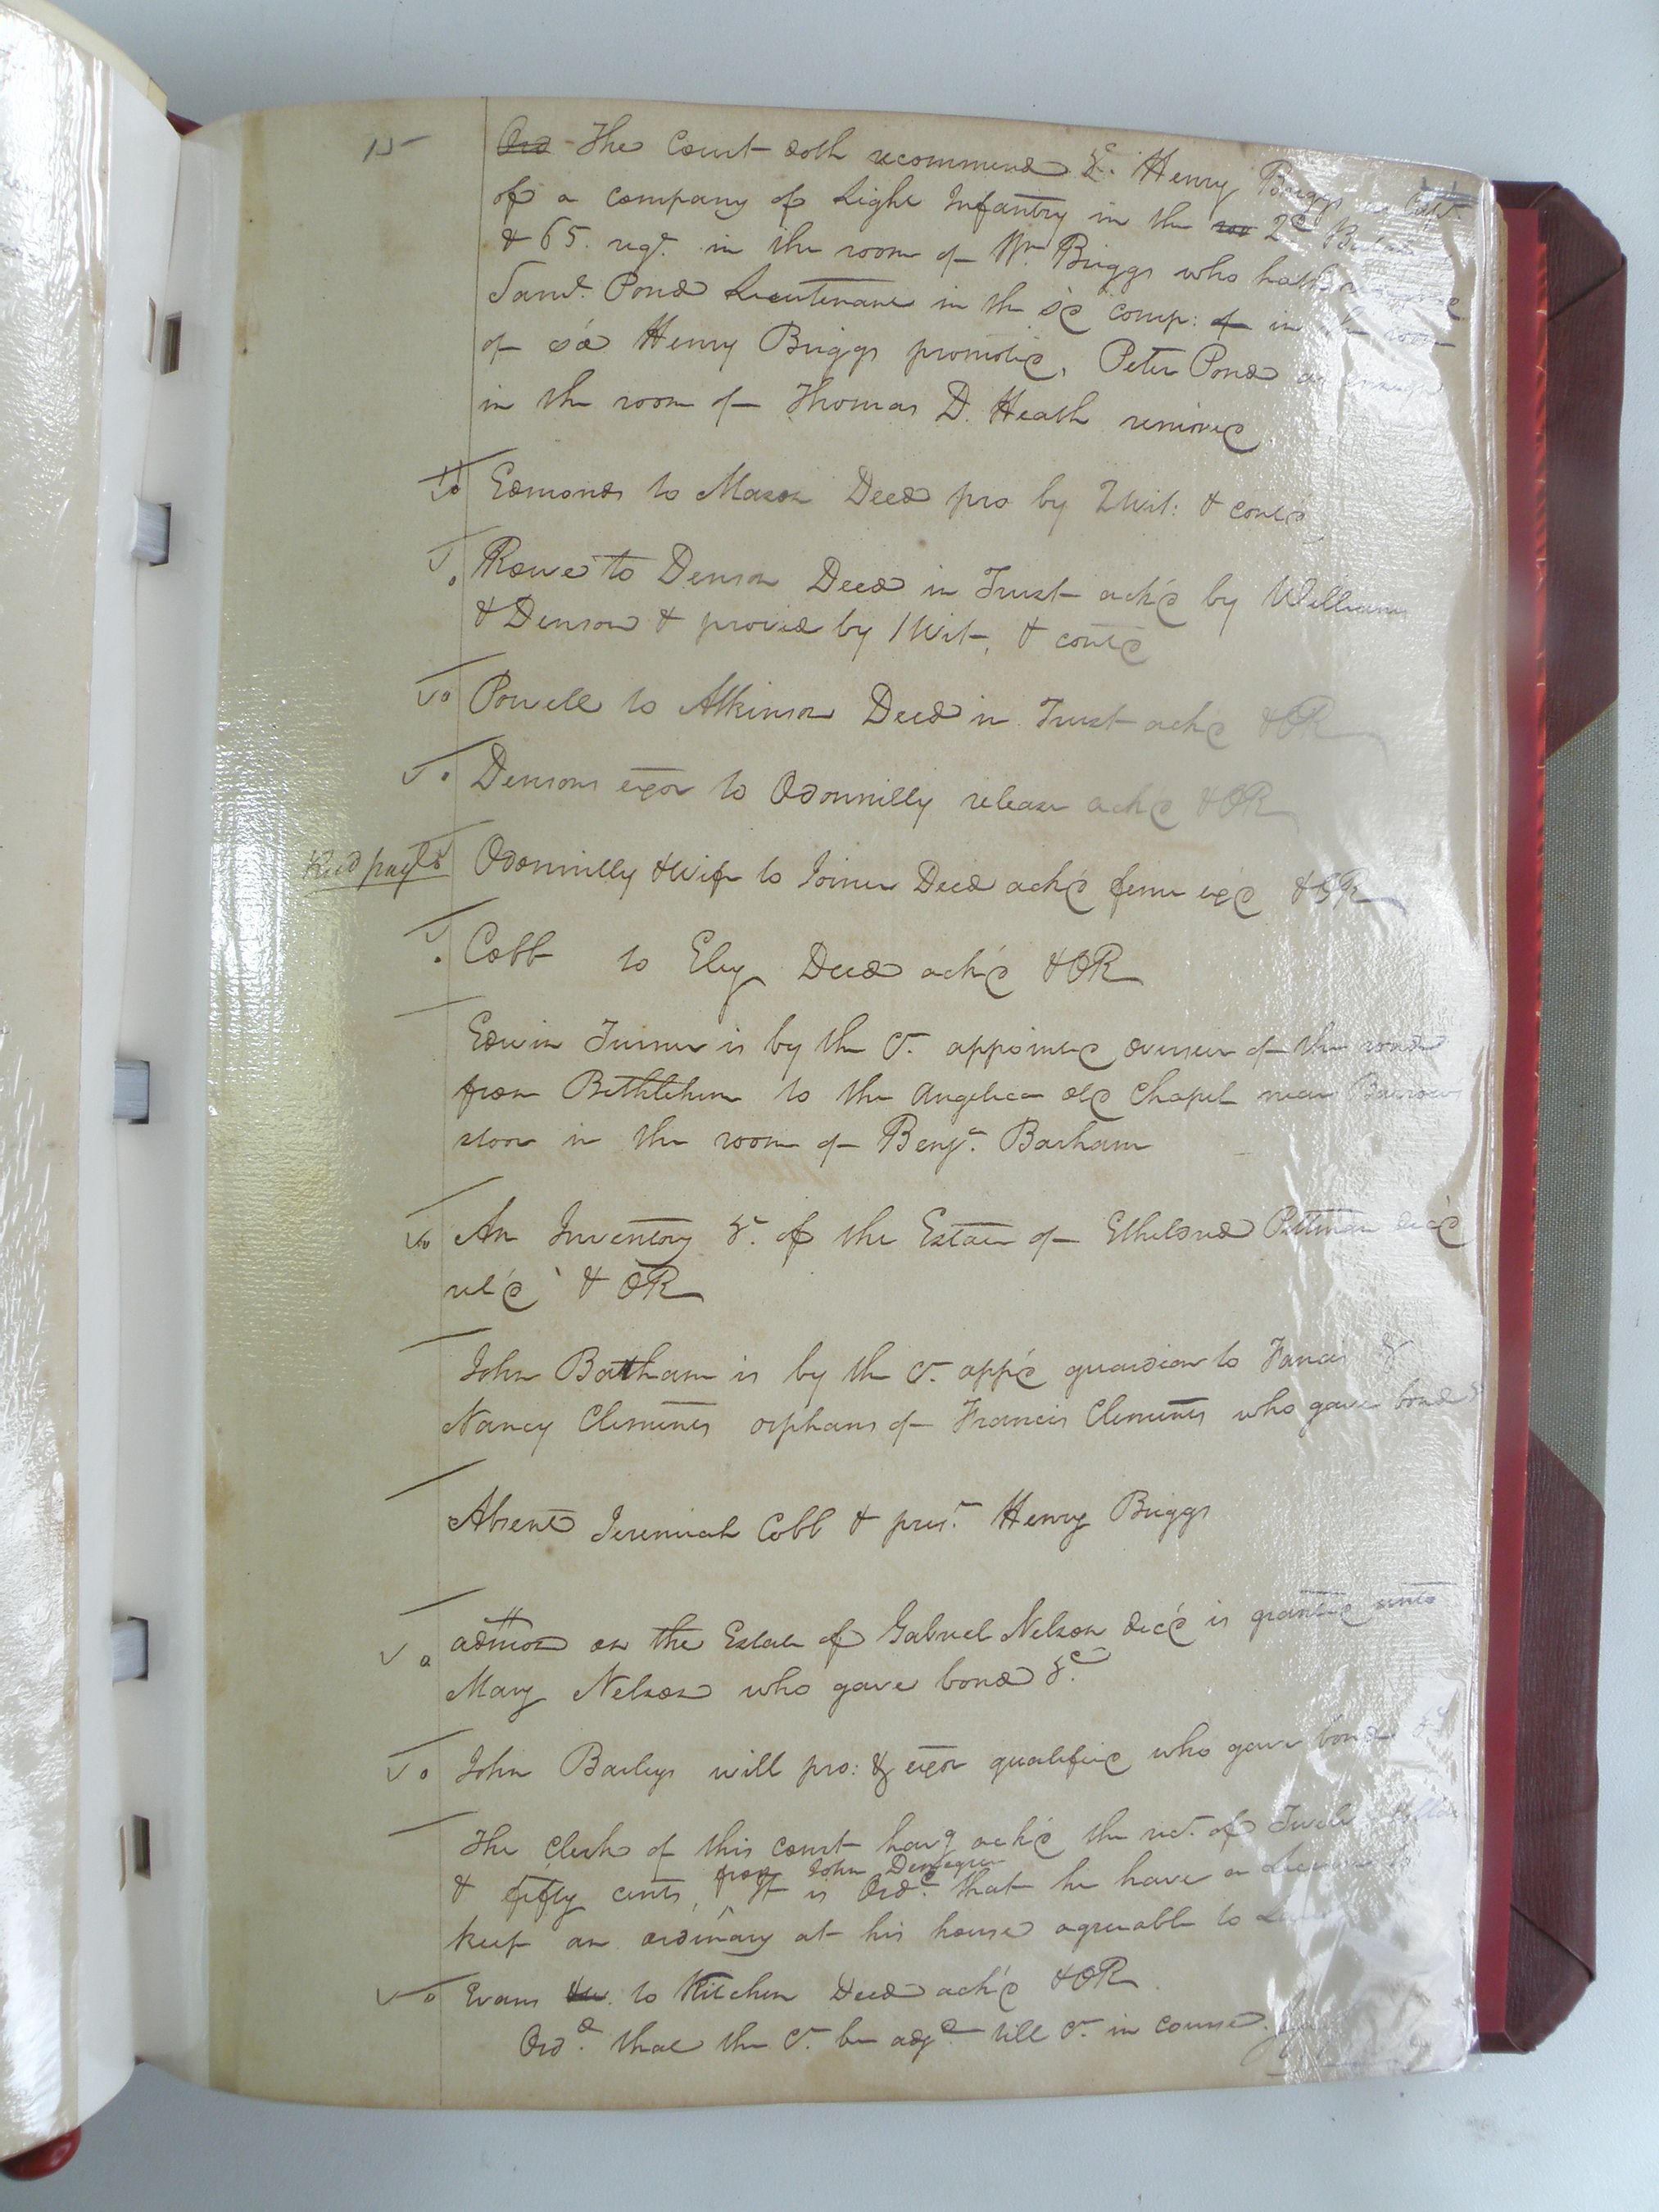 15
Ord The Court doth recommend &c. Henry Briggs as Capt.
of a company of Light Infantry in the 2d
& 65. regt. in the room of Wm Briggs who hath
Saml. Pond Lieutenant in the sd comp: of in the room
of sd Henry Briggs promoted, Peter Pond as ensign
in the room of Thomas D. Heath removed
Vo Edmonds to Mason Deed pro by 2 Wit: & contd
Vo Rowe to Denson Deed in Trust ackd by Williams
& Denson & proved by 1 Wit. & contd
Vo Powell to Atkinson Deed in Trust ackd & OR
Vo Densons exor to Odonnilly release ackd & OR
Odonnilly & Wife to Joiner Deed ackd feme exd & OR
Vo Cobb to Eley Deed ackd & OR
Edwin Turner is by the Ct. appointed overseer of the road
from Bethlehem to the Angelica old Chapel near Barrows
store in the room of Benja. Barham
Vo An Inventory &c. of the Estate of Etheldred Pittman decd
retd & OR
John Barham is by the Ct. appd guardian to Francis &
Nancy Clements orphans of Francis Clements who gave bond &c
Absent Jeremiah Cobb & prest. Henry Briggs
Vo admon on the Estate of Gabriel Nelson decd is granted unto
Mary Nelson who gave bond &c.
Vo John Baileys will pro: & exor qualified who gave bond &c
The Clerk of this court havg ackd the rect. of Twelve dollars
from John
& fifty cents, ^ It is Ordd. that he have a license to
keep an ordinary at his house agreeable to Law
Vo Evans to Kitchen Deed ackd & OR
Ordd. that the Ct. be adjd. till Ct. in course.